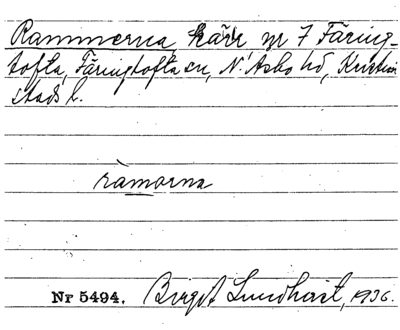 Rammerna kärr yr 7 Färing-
tofta, Färingtofta sn, N. Asbo hd, Kristian
stads l.
ràmorna
Nr 5494. Birgit Lundkvist, 1936.